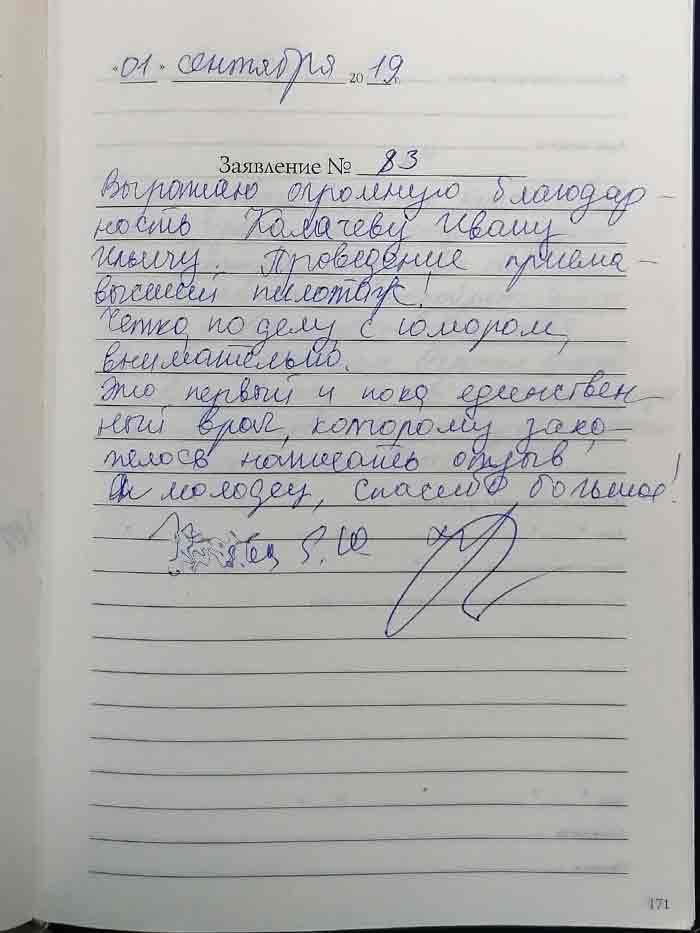 «01» сентября 2019
Заявление № 83
Выражаю огромную благодар-
ность Калачеву Ивану
Ильичу. Проведение приема -
высший пилотаж!
Четко, по делу, с юмором,
внимательно.
Это первый и пока единствен-
ный врач, которому захо-
телось написать отзыв!
Он молодец, спасибо большое!
171